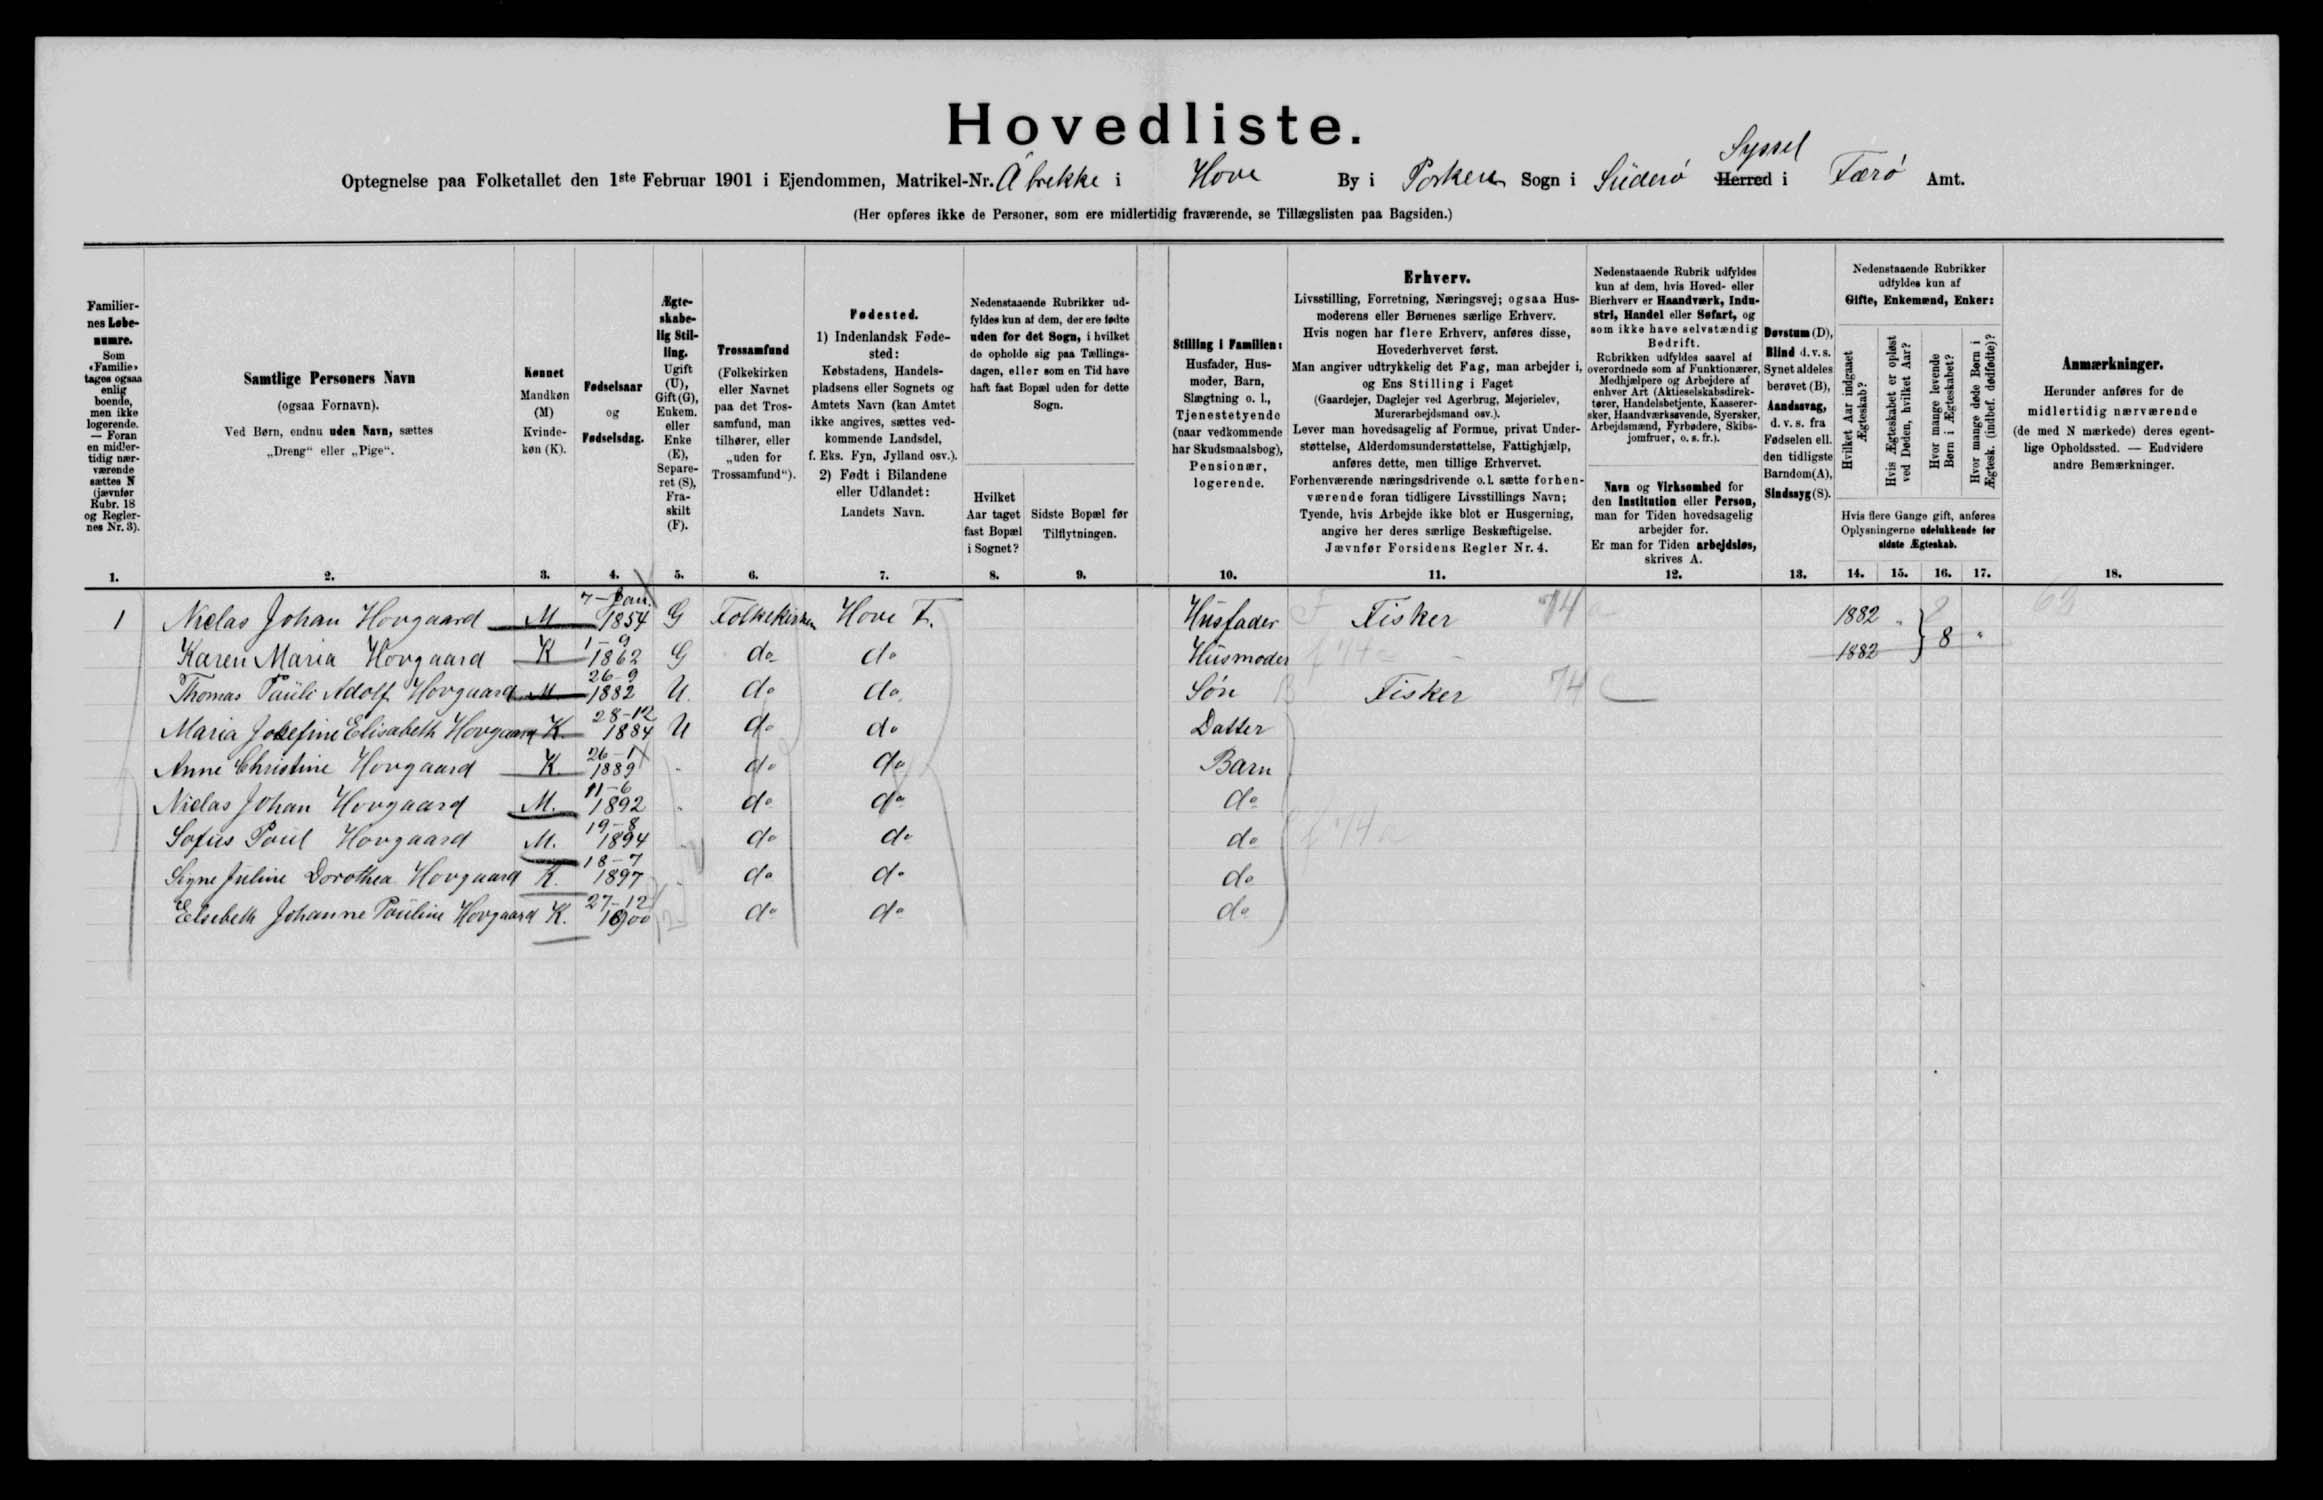 Hovedliste.
Optegnelse paa Folketallet den 1ste Februar 1901 i Ejendommen, Matrikel-Nr. Åbrekke i Hove By i Porkere Sogn i Süderö Herred Syssel i Færö Amt.
(Her opføres ikke de Personer, som ere midlertidig fraværende, se Tillægslisten paa Bagsiden.)
Familiernes Løbenumre.
Som «Familie» tages ogsaa enlig boende, men ikke logerende. — Foran en midlertidig nærværende sættes N (jævnfør Rubr. 18 og Reglernes Nr. 3).
Samtlige Personers Navn
(ogsaa Fornavn).
Ved Børn, endnu uden Navn, sættes
„Dreng“ eller „Pige“.
Kønnet
Mandkøn (M)
Kvindekøn (K).
Fødselsaar
og
Fødselsdag.
Ægteskabelig Stilling.
Ugift (U), Gift (G), Enkem. eller Enke (E), Separeret (S), Fraskilt (F).
Trossamfund
(Folkekirken eller Navnet paa det Trossamfund, man tilhører, eller „uden for Trossamfund“).
Fødested.
1) Indenlandsk Fødested:
Købstadens, Handelspladsens eller Sognets og Amtets Navn (kan Amtet ikke angives, sættes vedkommende Landsdel, f. Eks. Fyn, Jylland osv.).
2) Født i Bilandene eller Udlandet:
Landets Navn.
Nedenstaaende Rubrikker udfyldes kun af dem, der ere fødte uden for det Sogn, i hvilket de opholde sig paa Tællingsdagen, eller som en Tid have haft fast Bopæl uden for dette Sogn.
Hvilket Aar taget fast Bopæl i Sognet?
Sidste Bopæl før Tilflytningen.
Stilling i Familien:
Husfader, Husmoder, Barn, Slægtning o. l., Tjenestetyende (naar vedkommende har Skudsmaalsbog), Pensionær, logerende.
Erhverv.
Livsstilling, Forretning, Næringsvej; ogsaa Husmoderens eller Børnenes særlige Erhverv.
Hvis nogen har flere Erhverv, anføres disse, Hovederhvervet først.
Man angiver udtrykkelig det Fag, man arbejder i, og Ens Stilling i Faget
(Gaardejer, Daglejer ved Agerbrug, Mejerielev, Murerarbejdsmand osv.).
Lever man hovedsagelig af Formue, privat Understøttelse, Alderdomsunderstøttelse, Fattighjælp, anføres dette, men tillige Erhvervet.
Forhenværende næringsdrivende o.l. sætte forhenværende foran tidligere Livsstillings Navn;
Tyende, hvis Arbejde ikke blot er Husgerning, angive her deres særlige Beskæftigelse.
Jævnfør Forsidens Regler Nr. 4.
Nedenstaaende Rubrik udfyldes kun af dem, hvis Hoved- eller Bierhverv er Haandværk, Industri, Handel eller Søfart, og som ikke have selvstændig Bedrift.
Rubrikken udfyldes saavel af overordnede som af Funktionærer, Medhjælpere og Arbejdere af enhver Art (Aktieselskabsdirektører, Handelsbetjente, Kasserersker, Haandværkssvende, Syersker, Arbejdsmænd, Fyrbødere, Skibsjomfruer, o. s. fr.).
Navn og Virksomhed for den Institution eller Person, man for Tiden hovedsagelig arbejder for.
Er man for Tiden arbejdsløs, skrives A.
Døvstum (D), Blind d. v. s. Synet aldeles berøvet (B), Aandssvag, d. v. s. fra Fødselen ell. den tidligste Barndom (A), Sindssyg (S).
Nedenstaaende Rubrikker udfyldes kun af
Gifte, Enkemænd, Enker:
Hvilket Aar indgaaet Ægteskab?
Hvis Ægteskabet er opløst ved Døden, hvilket Aar?
Hvor mange levende Børn i Ægteskabet?
Hvor mange døde Børn i Ægtesk. (indbef. dødfødte)?
Hvis flere Gange gift, anføres Oplysningerne udelukkende for sidste Ægteskab.
Anmærkninger.
Herunder anføres for de midlertidig nærværende (de med N mærkede) deres egentlige Opholdssted. — Endvidere andre Bemærkninger.
1. 2. 3. 4. 5. 6. 7. 8. 9. 10. 11. 12. 13. 14. 15. 16. 17. 18.
1 Niclas Johan Hovgaard M 7-Jan. 1854 G Folkekirken Hove F. Husfader F Fisker 74 a 1882 " 69
Karen Maria Hovgaard K 1-9 1862 G do do Husmoder f 74 a - 1882 } 8 "
Thomas Pauli Adolf Hovgaard M 26-9 1882 U. do do Søn B Fisker 74 c
Maria Josefine Elisabeth Hovgaard K. 28-12 1884 U do do Datter
Anne Christine Hovgaard K. 26-1 1889 - do do Barn
Niclas Johan Hovgaard M. 11-6 1892 . do do do
Sofus Poul Hovgaard M. 19-8 1894 . do do do f 74 a
Signe Juline Dorothea Hovgaard K. 18-7 1897 . do do do
Elsebeth Johanne Pauline Hovgaard K. 27-12 1900 do do do